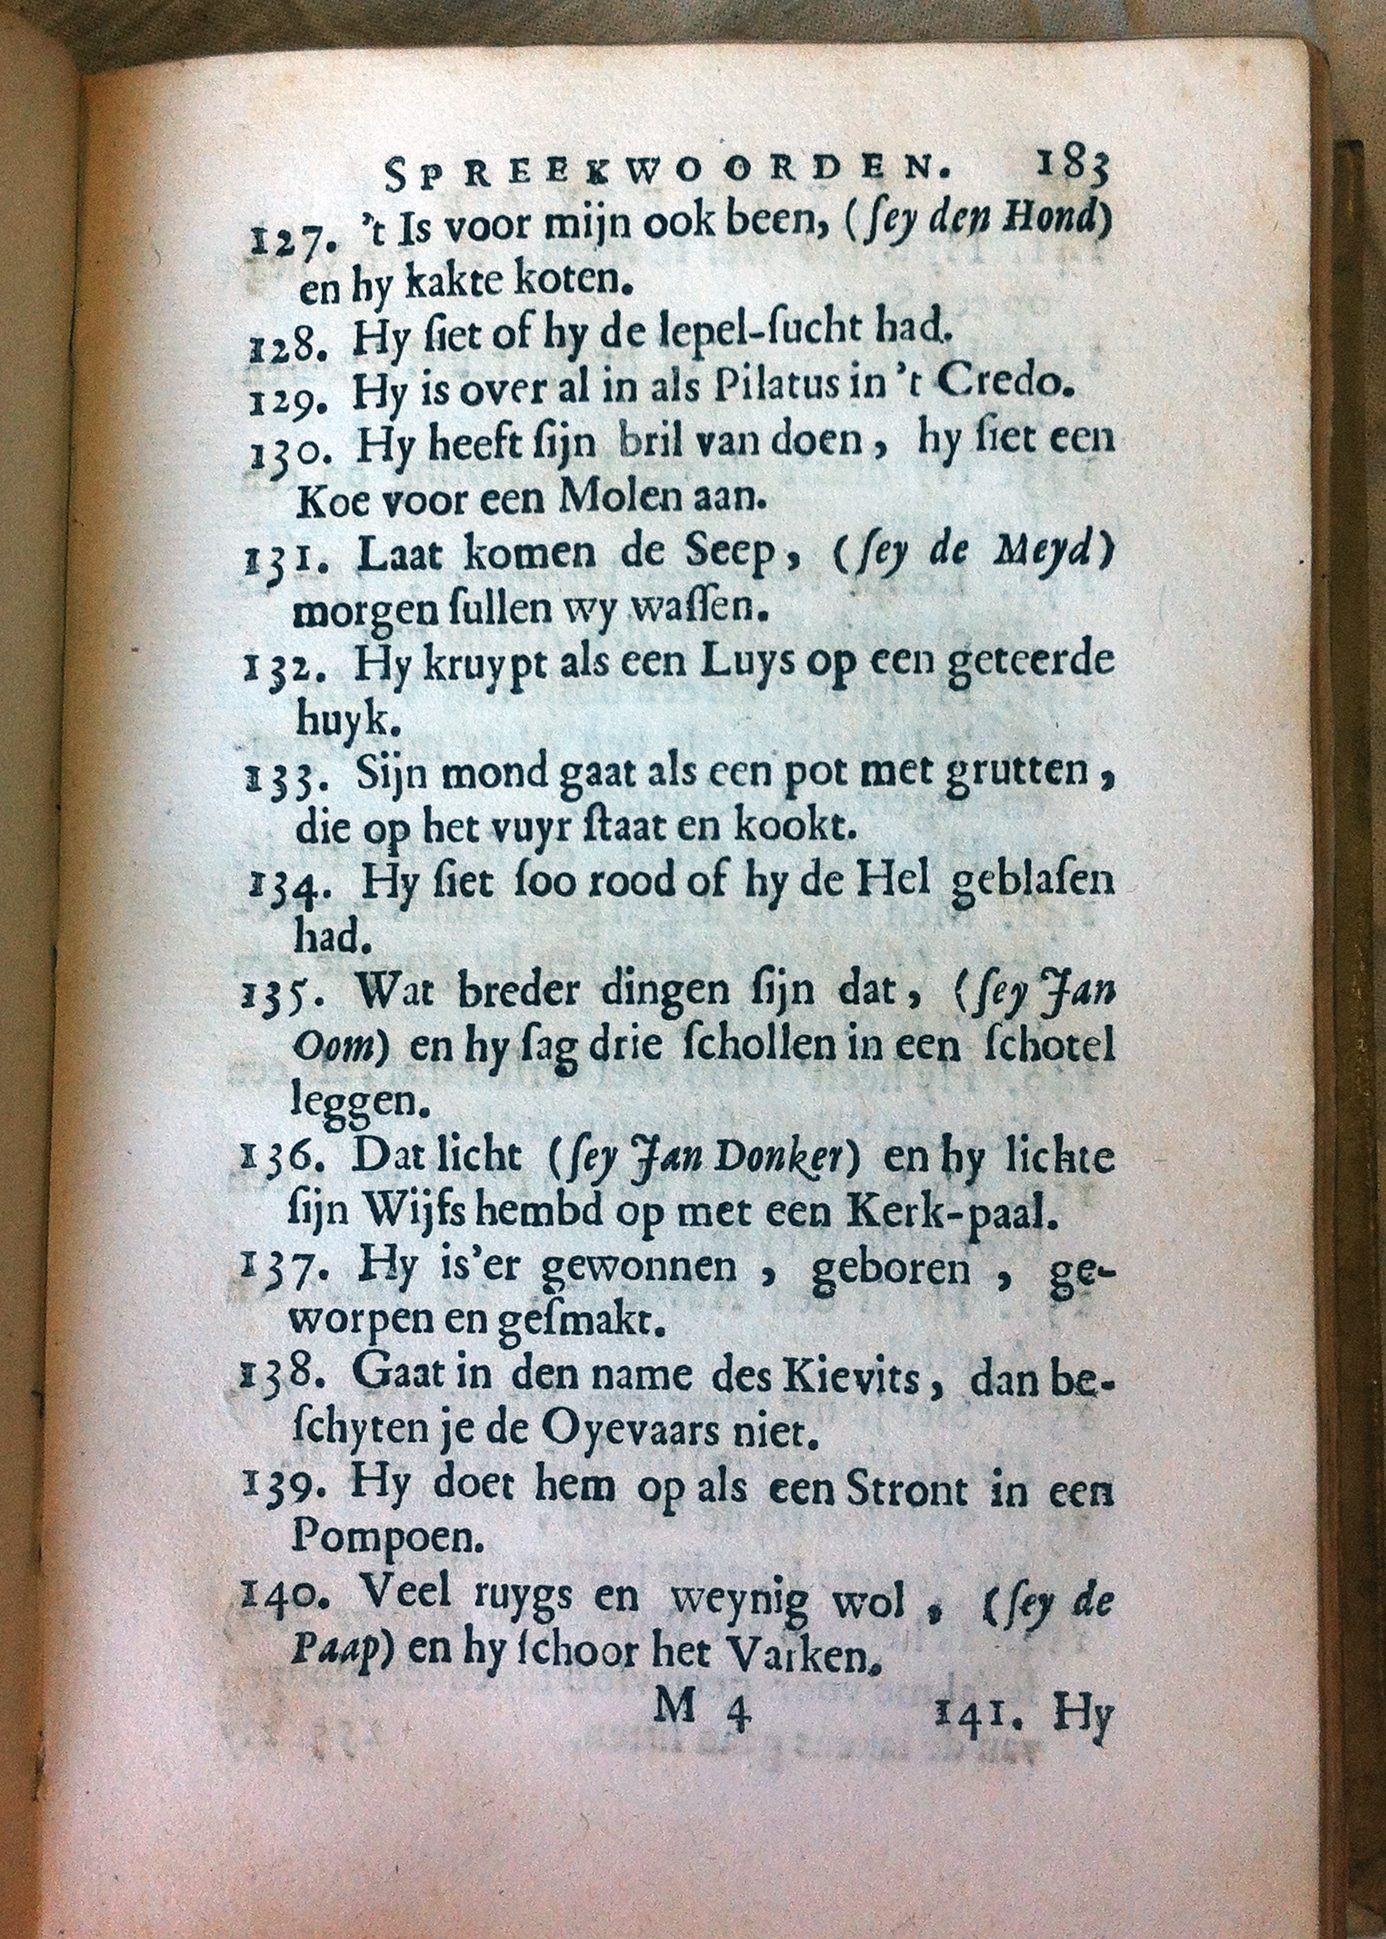 SPREEKWOORDEN. 183
127. 't Is voor mijn ook been, (ſey den Hond)
en hy kakte koten.
128. Hy ſiet of hy de lepel-ſucht had.
129. Hy is over al in als Pilatus in 't Credo.
130. Hy heeft ſijn bril van doen, hy ſiet een
Koe voor een Molen aan.
131. Laat komen de Seep, (ſey de Meyd)
morgen ſullen wy waſſen.
132. Hy kruypt als een Luys op een geteerde
huyk.
133. Sijn mond gaat als een pot met grutten,
die op het vuyr ſtaat en kookt.
134. Hy ſiet ſoo rood of hy de Hel geblaſen
had.
135. Wat breder dingen ſijn dat, (ſey Jan
Oom) en hy ſag drie ſchollen in een ſchotel
leggen.
136. Dat licht (ſey Jan Donker) en hy lichte
ſijn Wijfs hembd op met een Kerk-paal.
137. Hy is'er gewonnen, geboren, ge-
worpen en geſmakt.
138. Gaat in den name des Kievits, dan be-
ſchyten je de Oyevaars niet.
139. Hy doet hem op als een Stront in een
Pompoen.
140. Veel ruygs en weynig wol, (ſey de
Paap) en hy ſchoor het Varken.
M 4 141. Hy